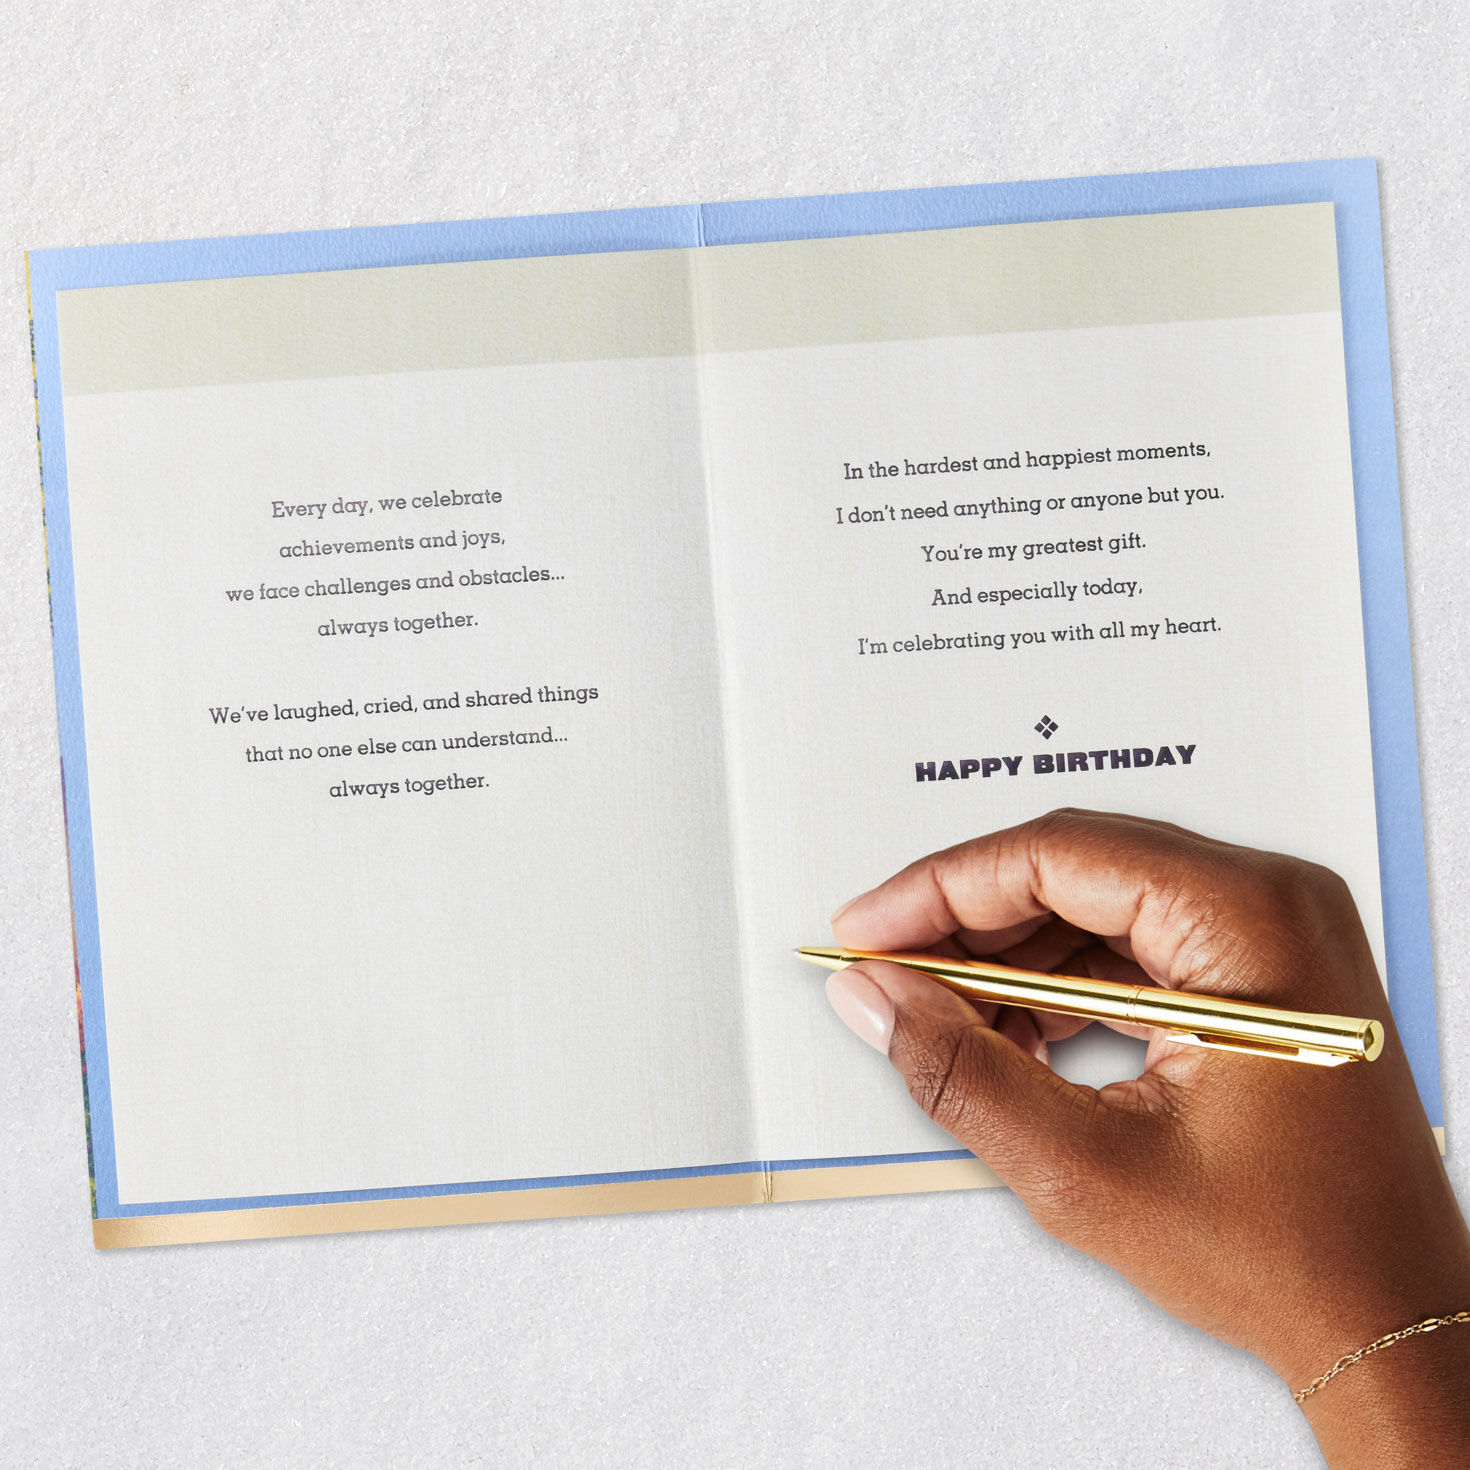 Every day, we celebrate
achievements and joys,
we face challenges and obstacles...
always together.
We've laughed, cried, and shared things
that no one else can understand...
always together.
In the hardest and happiest moments,
I don't need anything or anyone but you.
You're my greatest gift.
And especially today,
I'm celebrating you with all my heart.
HAPPY BIRTHDAY